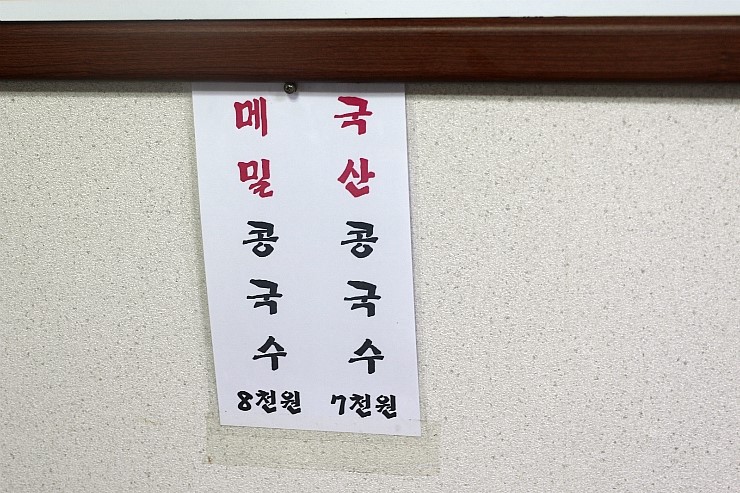 메밀콩국수 8천원
국산콩국수 7천원